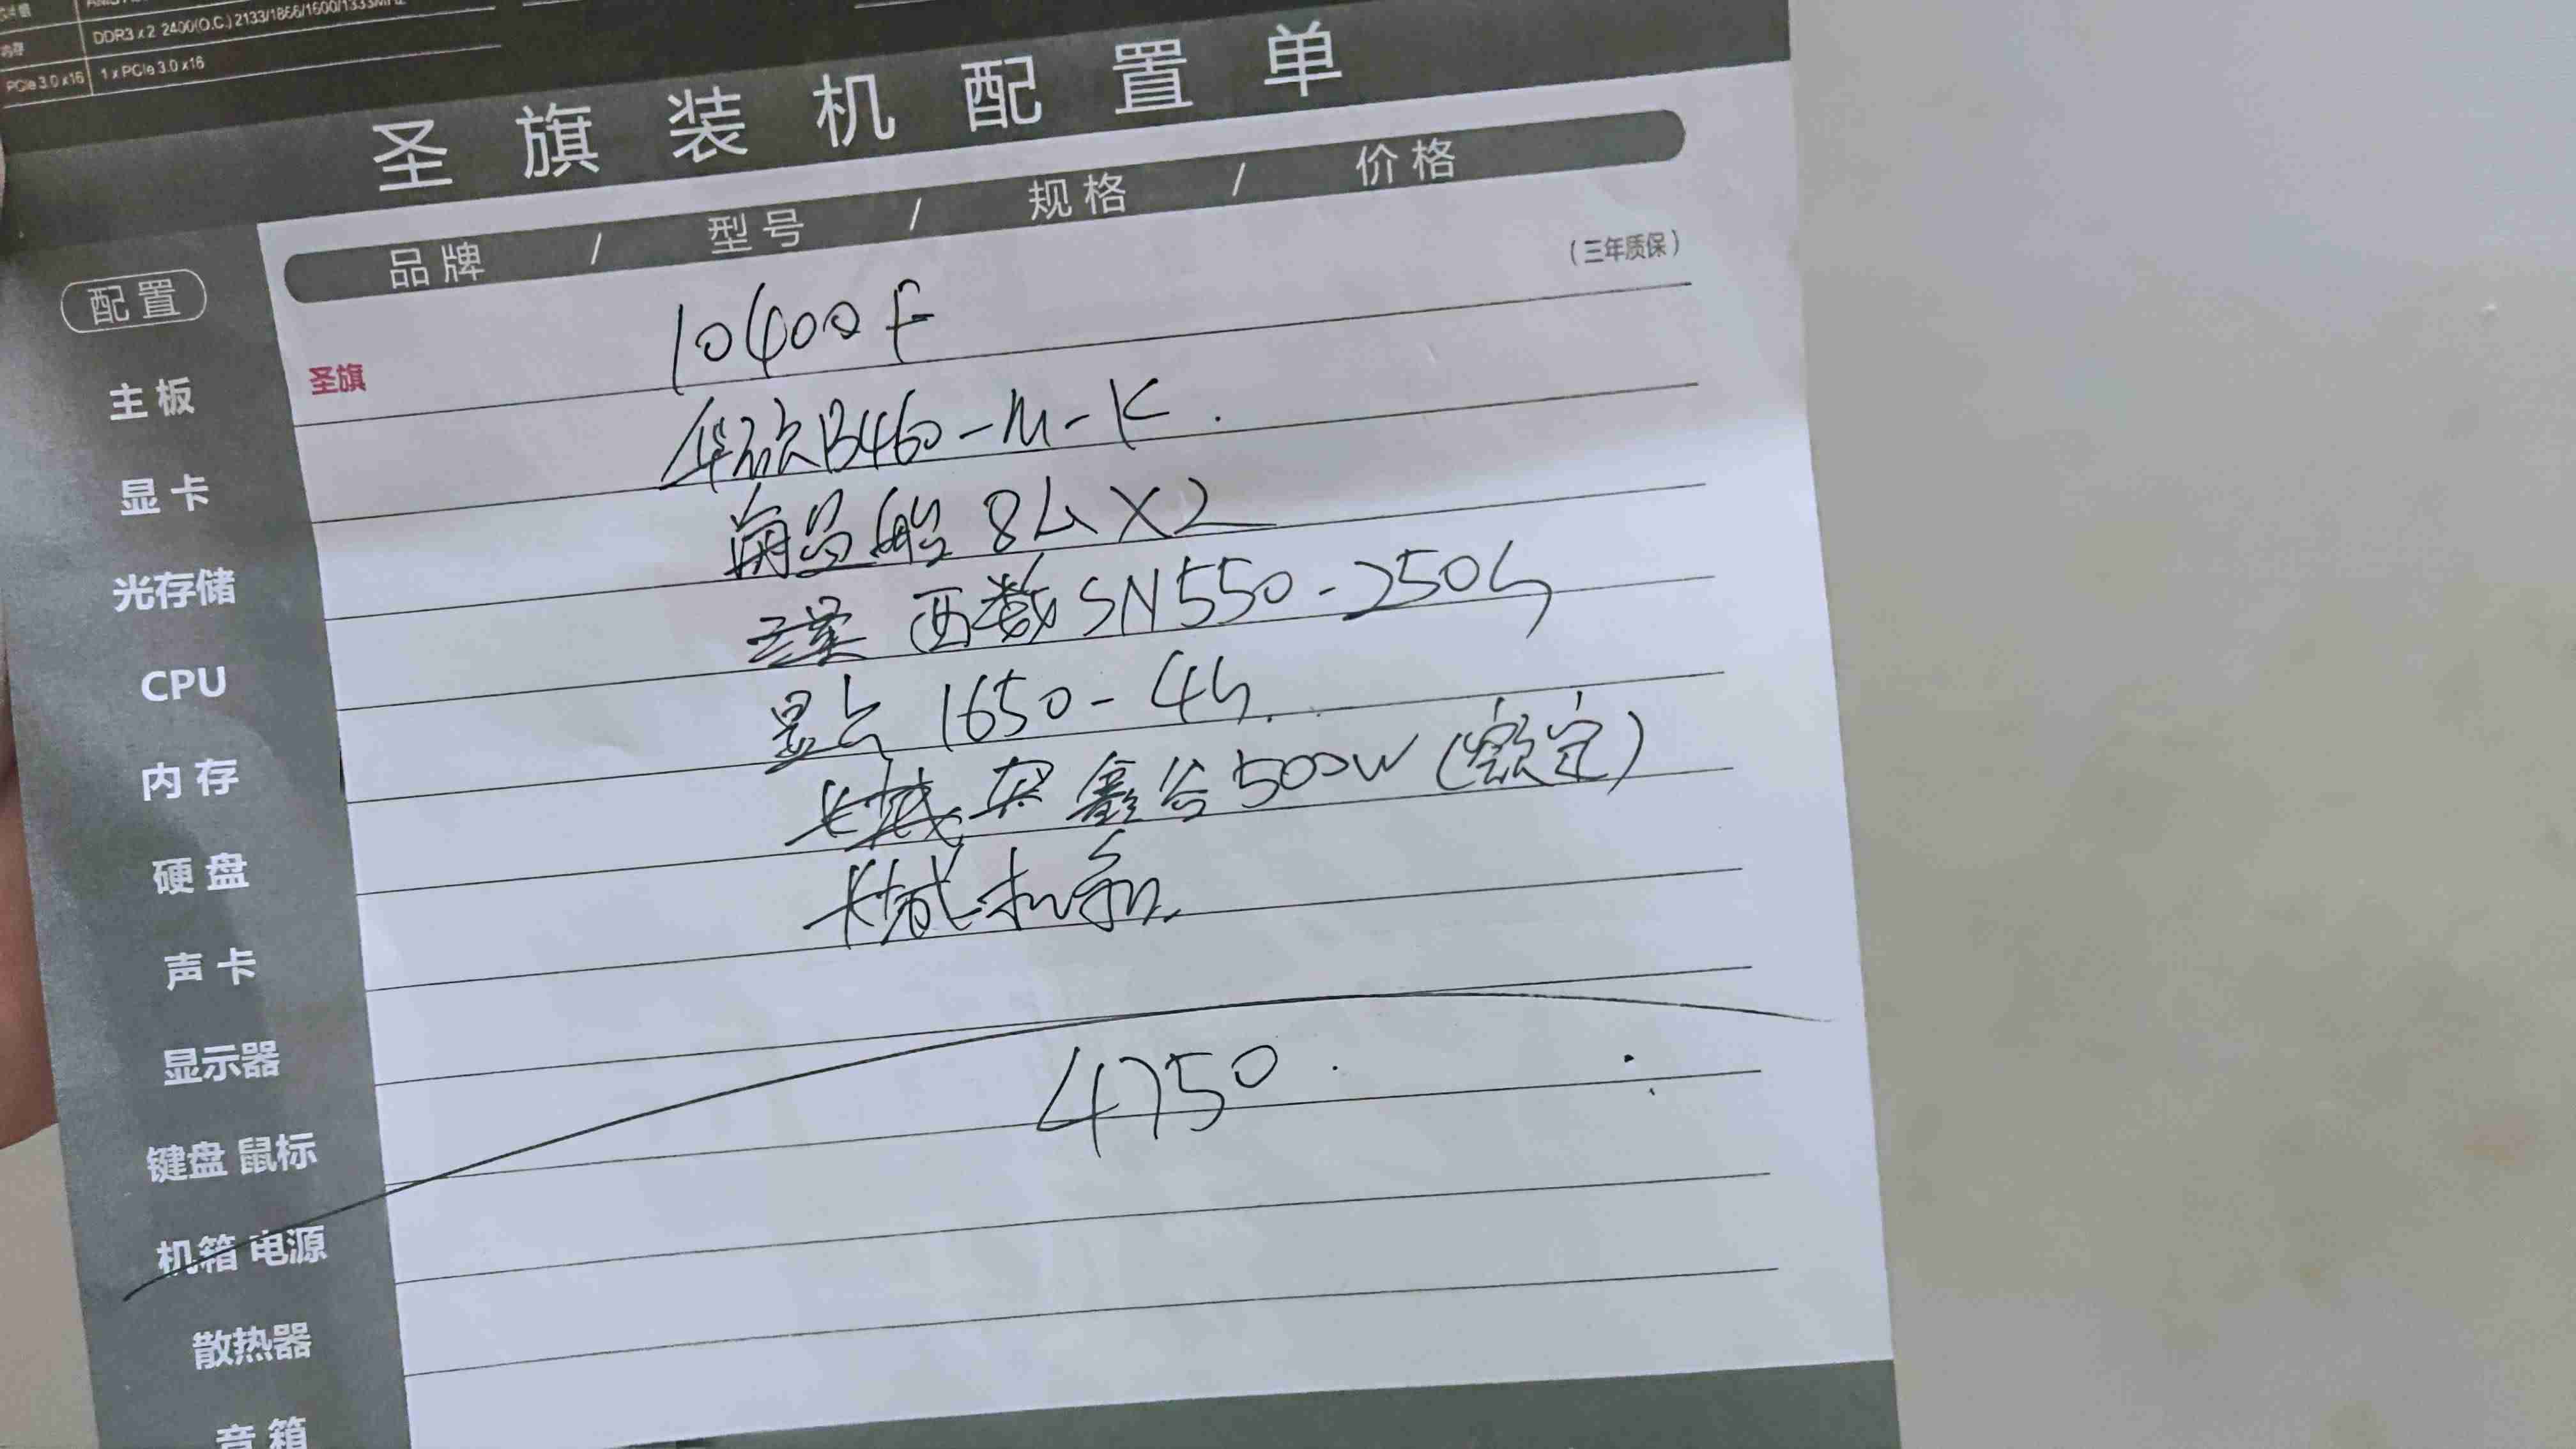 DDR3 x 2 2400(O.C.) 2133/1866/1600/1333MHz
内存
PCIe 3.0 x16 1 x PCIe 3.0 x16
圣旗装机配置单
品牌 / 型号 / 规格 / 价格
(三年质保)
配置
圣旗
10400F
主板
华硕B460-M-K.
显卡
8G X2
光存储
西数SN550-250G
CPU
显卡 1650-4G.
内存
长城 鑫谷500W (额定)
硬盘
长城机箱
声卡
显示器
4750.
键盘 鼠标
机箱 电源
散热器
音箱